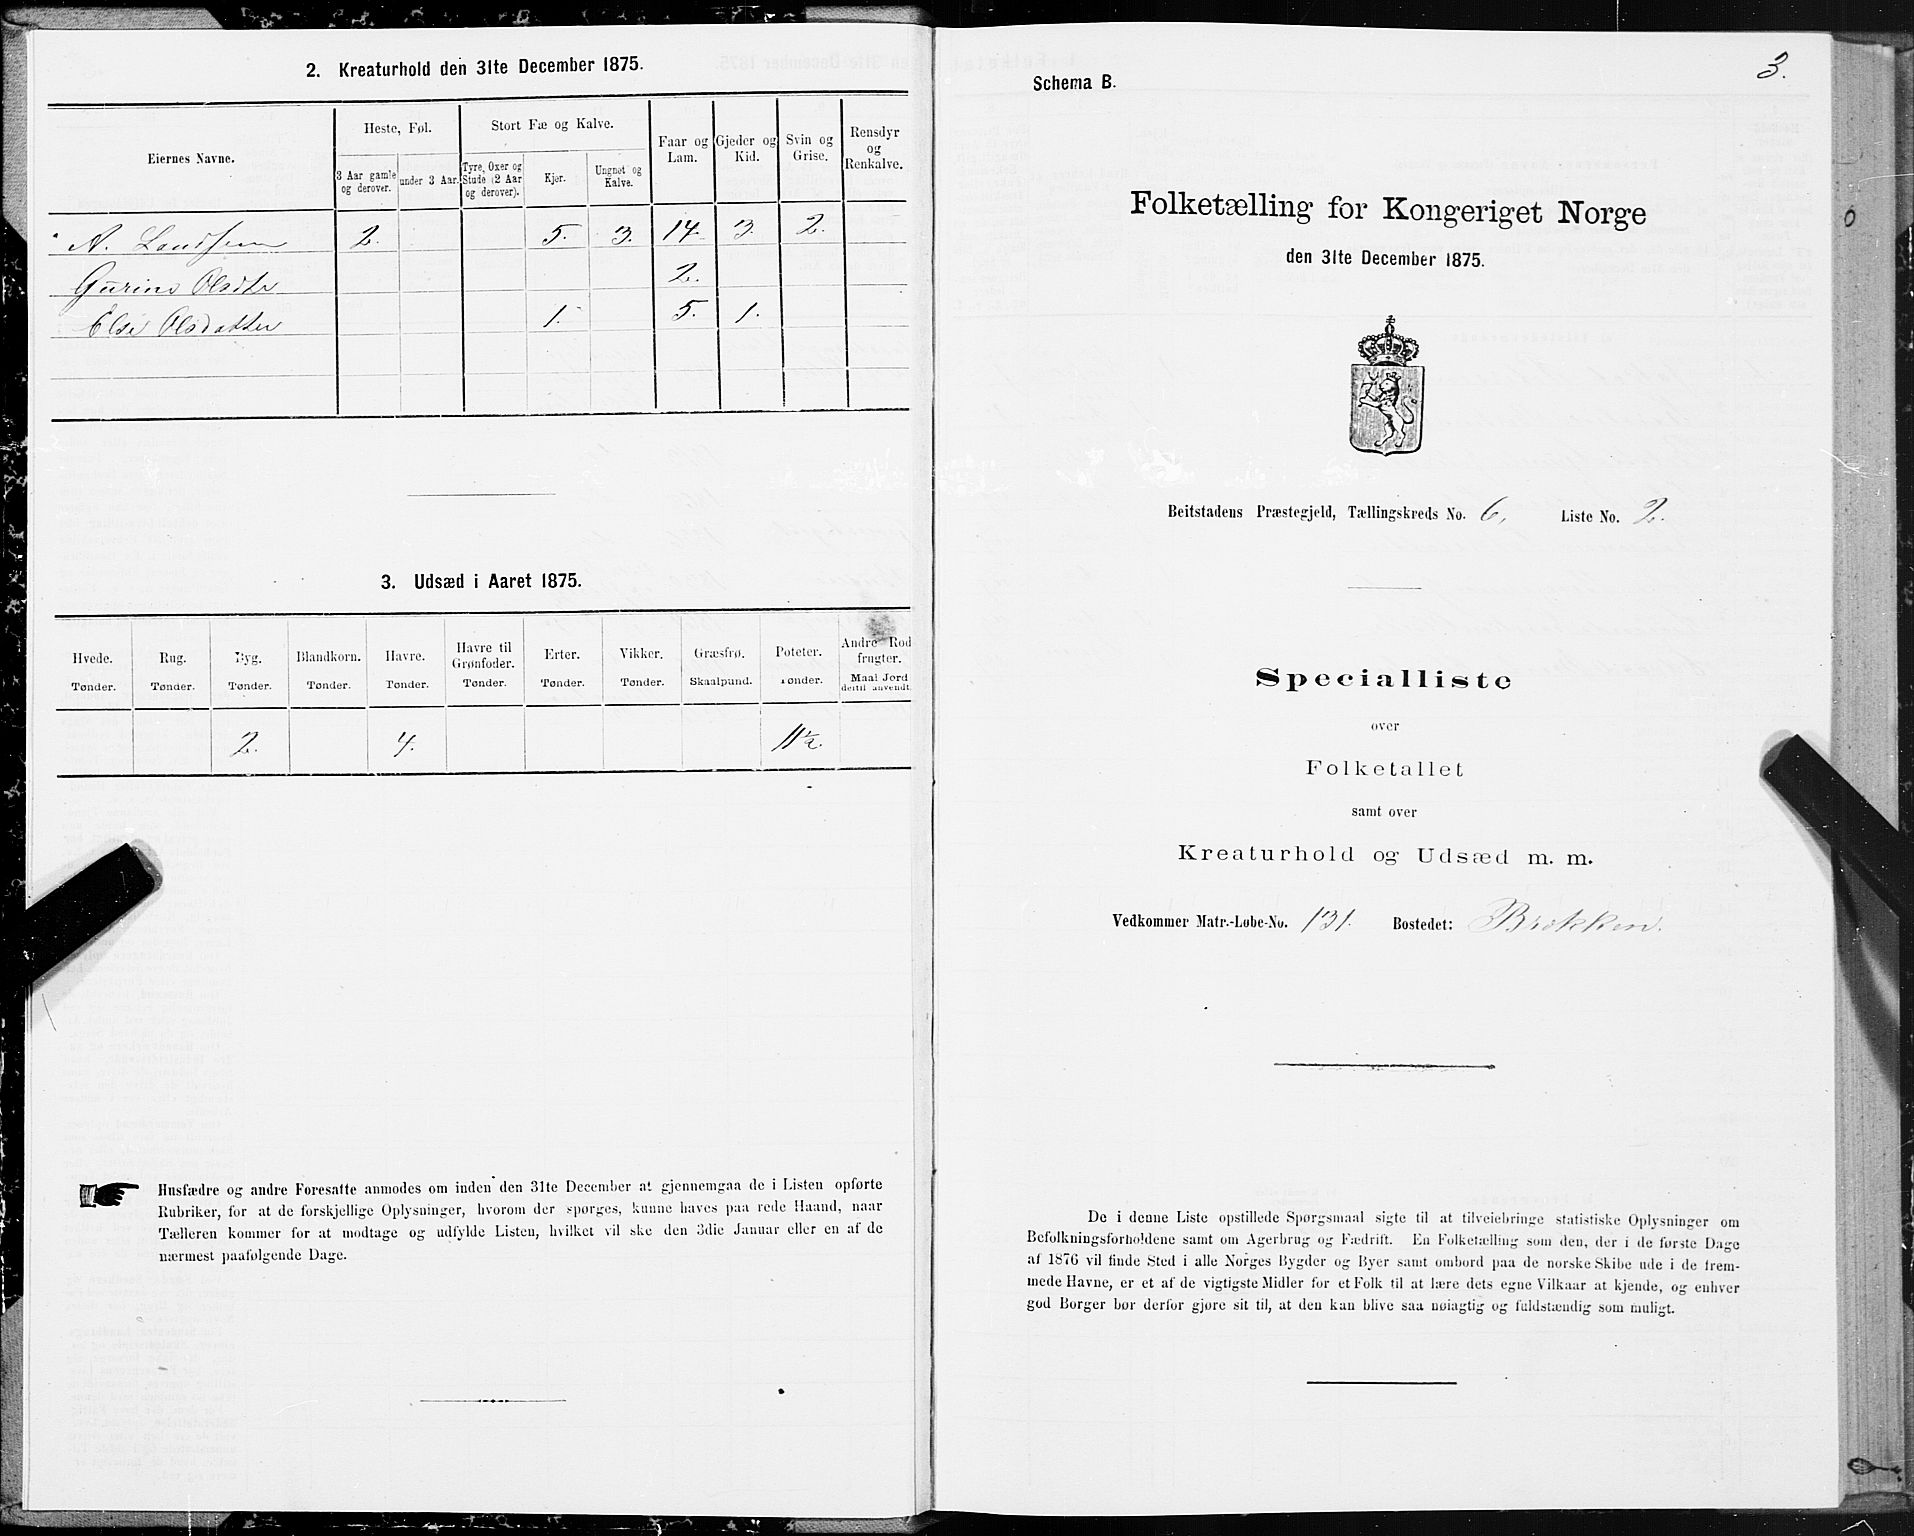 2. Kreaturhold den 31te December 1875.
Eiernes Navne.
Heste, Føl.
Stort Fæ og Kalve.
Faar og Lam.
Gjeder og Kid.
Svin og Grise.
Rensdyr og Renkalve.
3 Aar gamle og derover.
under 3 Aar.
Tyre, Oxer og Stude (2 Aar og derover).
Kjør.
Ungnøt og Kalve.
A. Landsem 2. 5. 3. 14. 3. 2.
Gurine Olsdtr 2.
Else Olsdatter 1. 5. 1.
3. Udsæd i Aaret 1875.
Hvede. Rug. Byg. Blandkorn. Havre. Havre til Grønfoder. Erter. Vikker. Græsfrø. Poteter. Andre Rodfrugter.
Tønder. Tønder. Tønder. Tønder. Tønder. Tønder. Tønder. Tønder. Skaalpund. Tønder. Maal Jord dertil anvendt.
2. 4. 11½.
Husfædre og andre Foresatte anmodes om inden den 31te December at gjennemgaa de i Listen opførte
Rubriker, for at de forskjellige Oplysninger, hvorom der spørges, kunne haves paa rede Haand, naar
Tælleren kommer for at modtage og udfylde Listen, hvilket vil ske den 3die Januar eller en af de
nærmest paafølgende Dage.
3.
Schema B.
Folketælling for Kongeriget Norge
den 31te December 1875.
Beitstadens Præstegjeld, Tællingskreds No. 6, Liste No. 2.
Specialliste
over
Folketallet
samt over
Kreaturhold og Udsæd m. m.
Vedkommer Matr.-Løbe-No. 131. Bostedet: Brækken.
De i denne Liste opstillede Spørgsmaal sigte til at tilveiebringe statistiske Oplysninger om
Befolkningsforholdene samt om Agerbrug og Fædrift. En Folketælling som den, der i de første Dage
af 1876 vil finde Sted i alle Norges Bygder og Byer samt ombord paa de norske Skibe ude i de frem-
mede Havne, er et af de vigtigste Midler for et Folk til at lære dets egne Vilkaar at kjende, og enhver
god Borger bør derfor gjøre sit til, at den kan blive saa nøiagtig og fuldstændig som muligt.